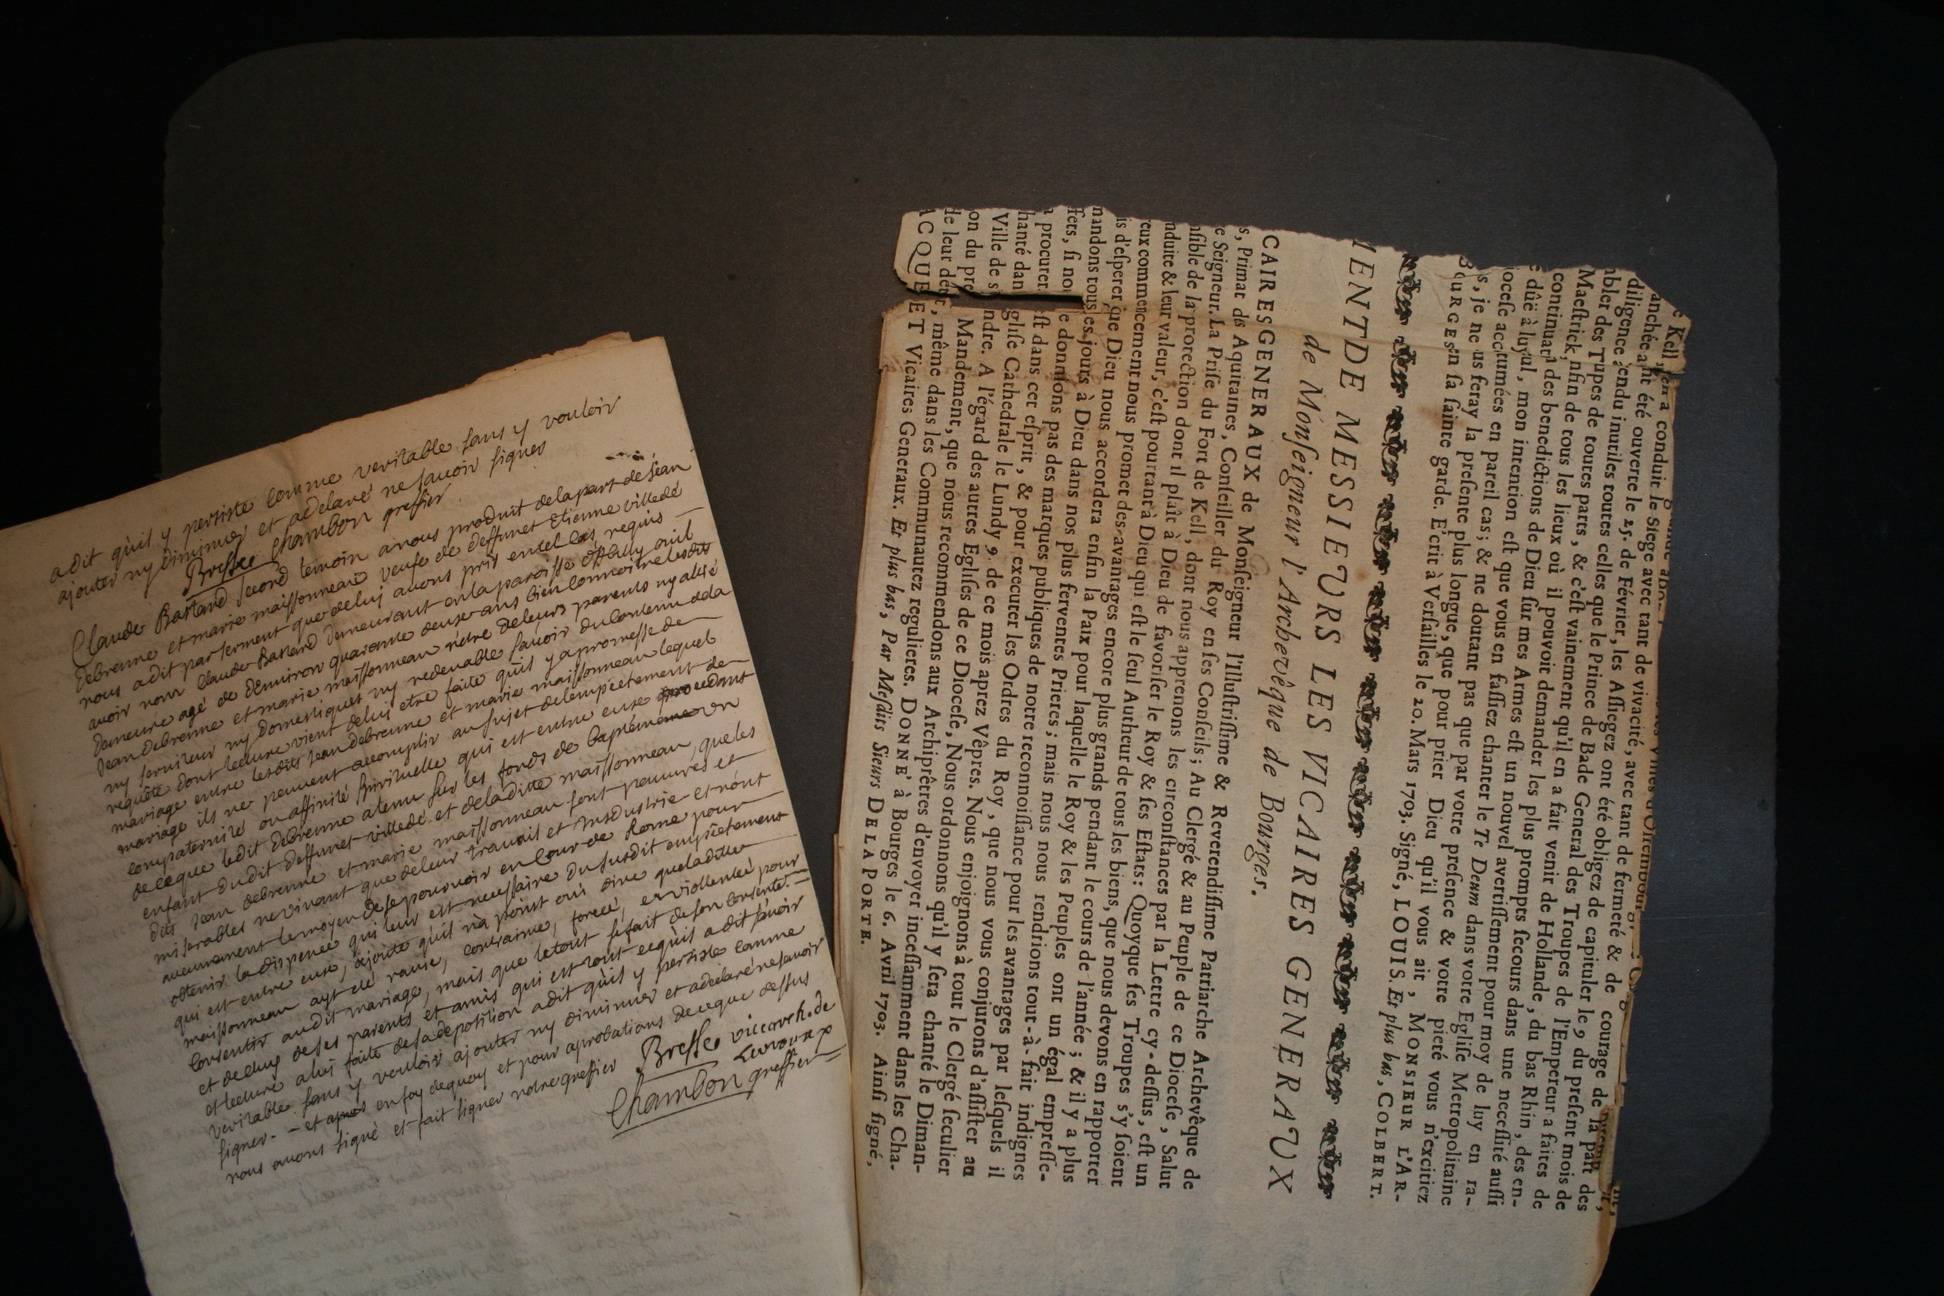 a dit quil y persiste comme veritable sans y vouloir
ajouter ny diminuer et a declaré ne savoir signer
Bresse Chambon greffier.
Claude Bastard second temoin a nous produit de la part de Jean
debrenne et marie maissonneau veufe de deffunct Etienne villedé
nous a dit par serment que de luy avons pris en tel cas requis
avoir nom Claude Bastard demeurant en la paroisse
demeure agé de denviron quarante deux ans bien connoitre lesdits
Jean debrenne et marie maissonneau n'etre de leurs parents ny allié
ny serviteur ny domestiques ny redevable savoir du contenu de la
requête dont lecture vient de luy etre faite quil y a promesse de
mariage entre lesdits Jean debrenne et marie maissonneau lequel
mariage ils ne peuvent accomplir au sujet de lempêchement de
compaternité ou affinité spirituelle qui est entre eux procedant
de ce que ledit debrenne a tenu sur les fonds de baptême un
enfant dudit deffunct villedé et de la ditte maissonneau, que les
dits Jean debrenne et marie maissonneau sont pauvres et
miserables ne vivant que de leur travail et industrie et n'ont
aucunement le moyen de se pourvoir en Cour de Rome pour
obtenir la dispence qui leur est necessaire du susdit empêchement
qui est entre eux, ajoute qu'il n'a point oui dire que la ditte
maissonneau ayt eté ravie, contrainte, forcée, et violentée pour
consentir audit mariage, mais que le tout se fait de son consente.
et de celuy de ses parents et amis qui est tout ce qu'il a dit savoir
et lecture a luy faite de sa deposition a dit qu'il y persiste comme
veritable sans y vouloir ajouter ny diminuer et a declaré ne savoir
signer. et apres en foy de quoy et pour aprobations de ce que dessus
nous avons signé et fait signer notre greffier Bresse
Chambon greffier
Kell
conduit le Siege avec tant de vivacité, avec tant de fermeté & de courage de la part des
ouverte le 25. de Février, les Assiegez ont été obligez de capituler le 9 du present mois de
inutiles toutes celles que le Prince de Bade General des Troupes de l'Empereur a faites de
Maestrick, nfin de toutes parts, & c'est vainement qu'il en a fait venir de Hollande, du bas Rhin, des en-
continuat des benedictions de Dieu sur mes Armes est un nouvel avertissement pour moy de luy en ra-
mon intention est que vous en fassiez chanter le Te Deum dans votre Eglise Metropolitaine
en pareil cas; & ne doutant pas que par votre presence & votre pieté vous n'excitiez
s, je ne us feray la presente plus longue, que pour prier Dieu qu'il vous ait, MONSIEUR L'AR-
BOURGES n sa sainte garde. Ecrit à Versailles le 20. Mars 1703. Signé, LOUIS. Et plus bas, COLBERT.
MENTDE MESSIEVRS LES VICAIRES GENERAVX
de Monseigneur l'Archevêque de Bourges.
CAIRES GENERAUX de Monseigneur l'Illustrissime & Reverendissime Patriarche Archevêque de
s, Primat ds Aquitaines, Conseiller du Roy en ses Conseils; Au Clergé & au Peuple de ce Diocese, Salut
e Seigneur. La Prise du Fort de Kell, dont nous apprenons les circonstances par la Lettre cy-dessus, est un
nsible de la protection dont il plaît à Dieu de favoriser le Roy & ses Estats: Quoyque ses Troupes s'y soient
nduite & leur valeur, c'est pourtant à Dieu qui est le seul Autheur de tous les biens, que nous devons en rapporter
eux commencement nous promet des-avantages encore plus grands pendant le cours de l'année; & il y a plus
is d'esperer que Dieu nous accordera enfin la Paix pour laquelle le Roy & les Peuples ont un égal empresse-
mandons tous les-jours à Dieu dans nos plus ferventes Prieres; mais nous nous rendrions tout-à-fait indignes
fets, si no e donnions pas des marques publiques de notre reconnoissance pour les avantages par lesquels il
procurer. st dans cet esprit, & pour executer les Ordres du Roy, que nous vous conjurons d'assister au
hanté dan glise Cathedrale le Lundy 9. de ce mois aprez Vêpres. Nous enjoignons à tout le Clergé seculier
Ville de s ndre. A l'égard des autres Eglises de ce Diocese, Nous ordonnons qu'il y sera chanté le Diman-
on du pre Mandement, que nous recommendons aux Archiprêtres d'envoyer incessamment dans les Cha-
de leur dét, même dans les Communautez regulieres. DONNE' à Bourges le 6. Avril 1703. Ainsi signé,
ACQUEMET Vicaires Generaux. Et plus bas, Par Mesdits Sieurs DELAPORTE.